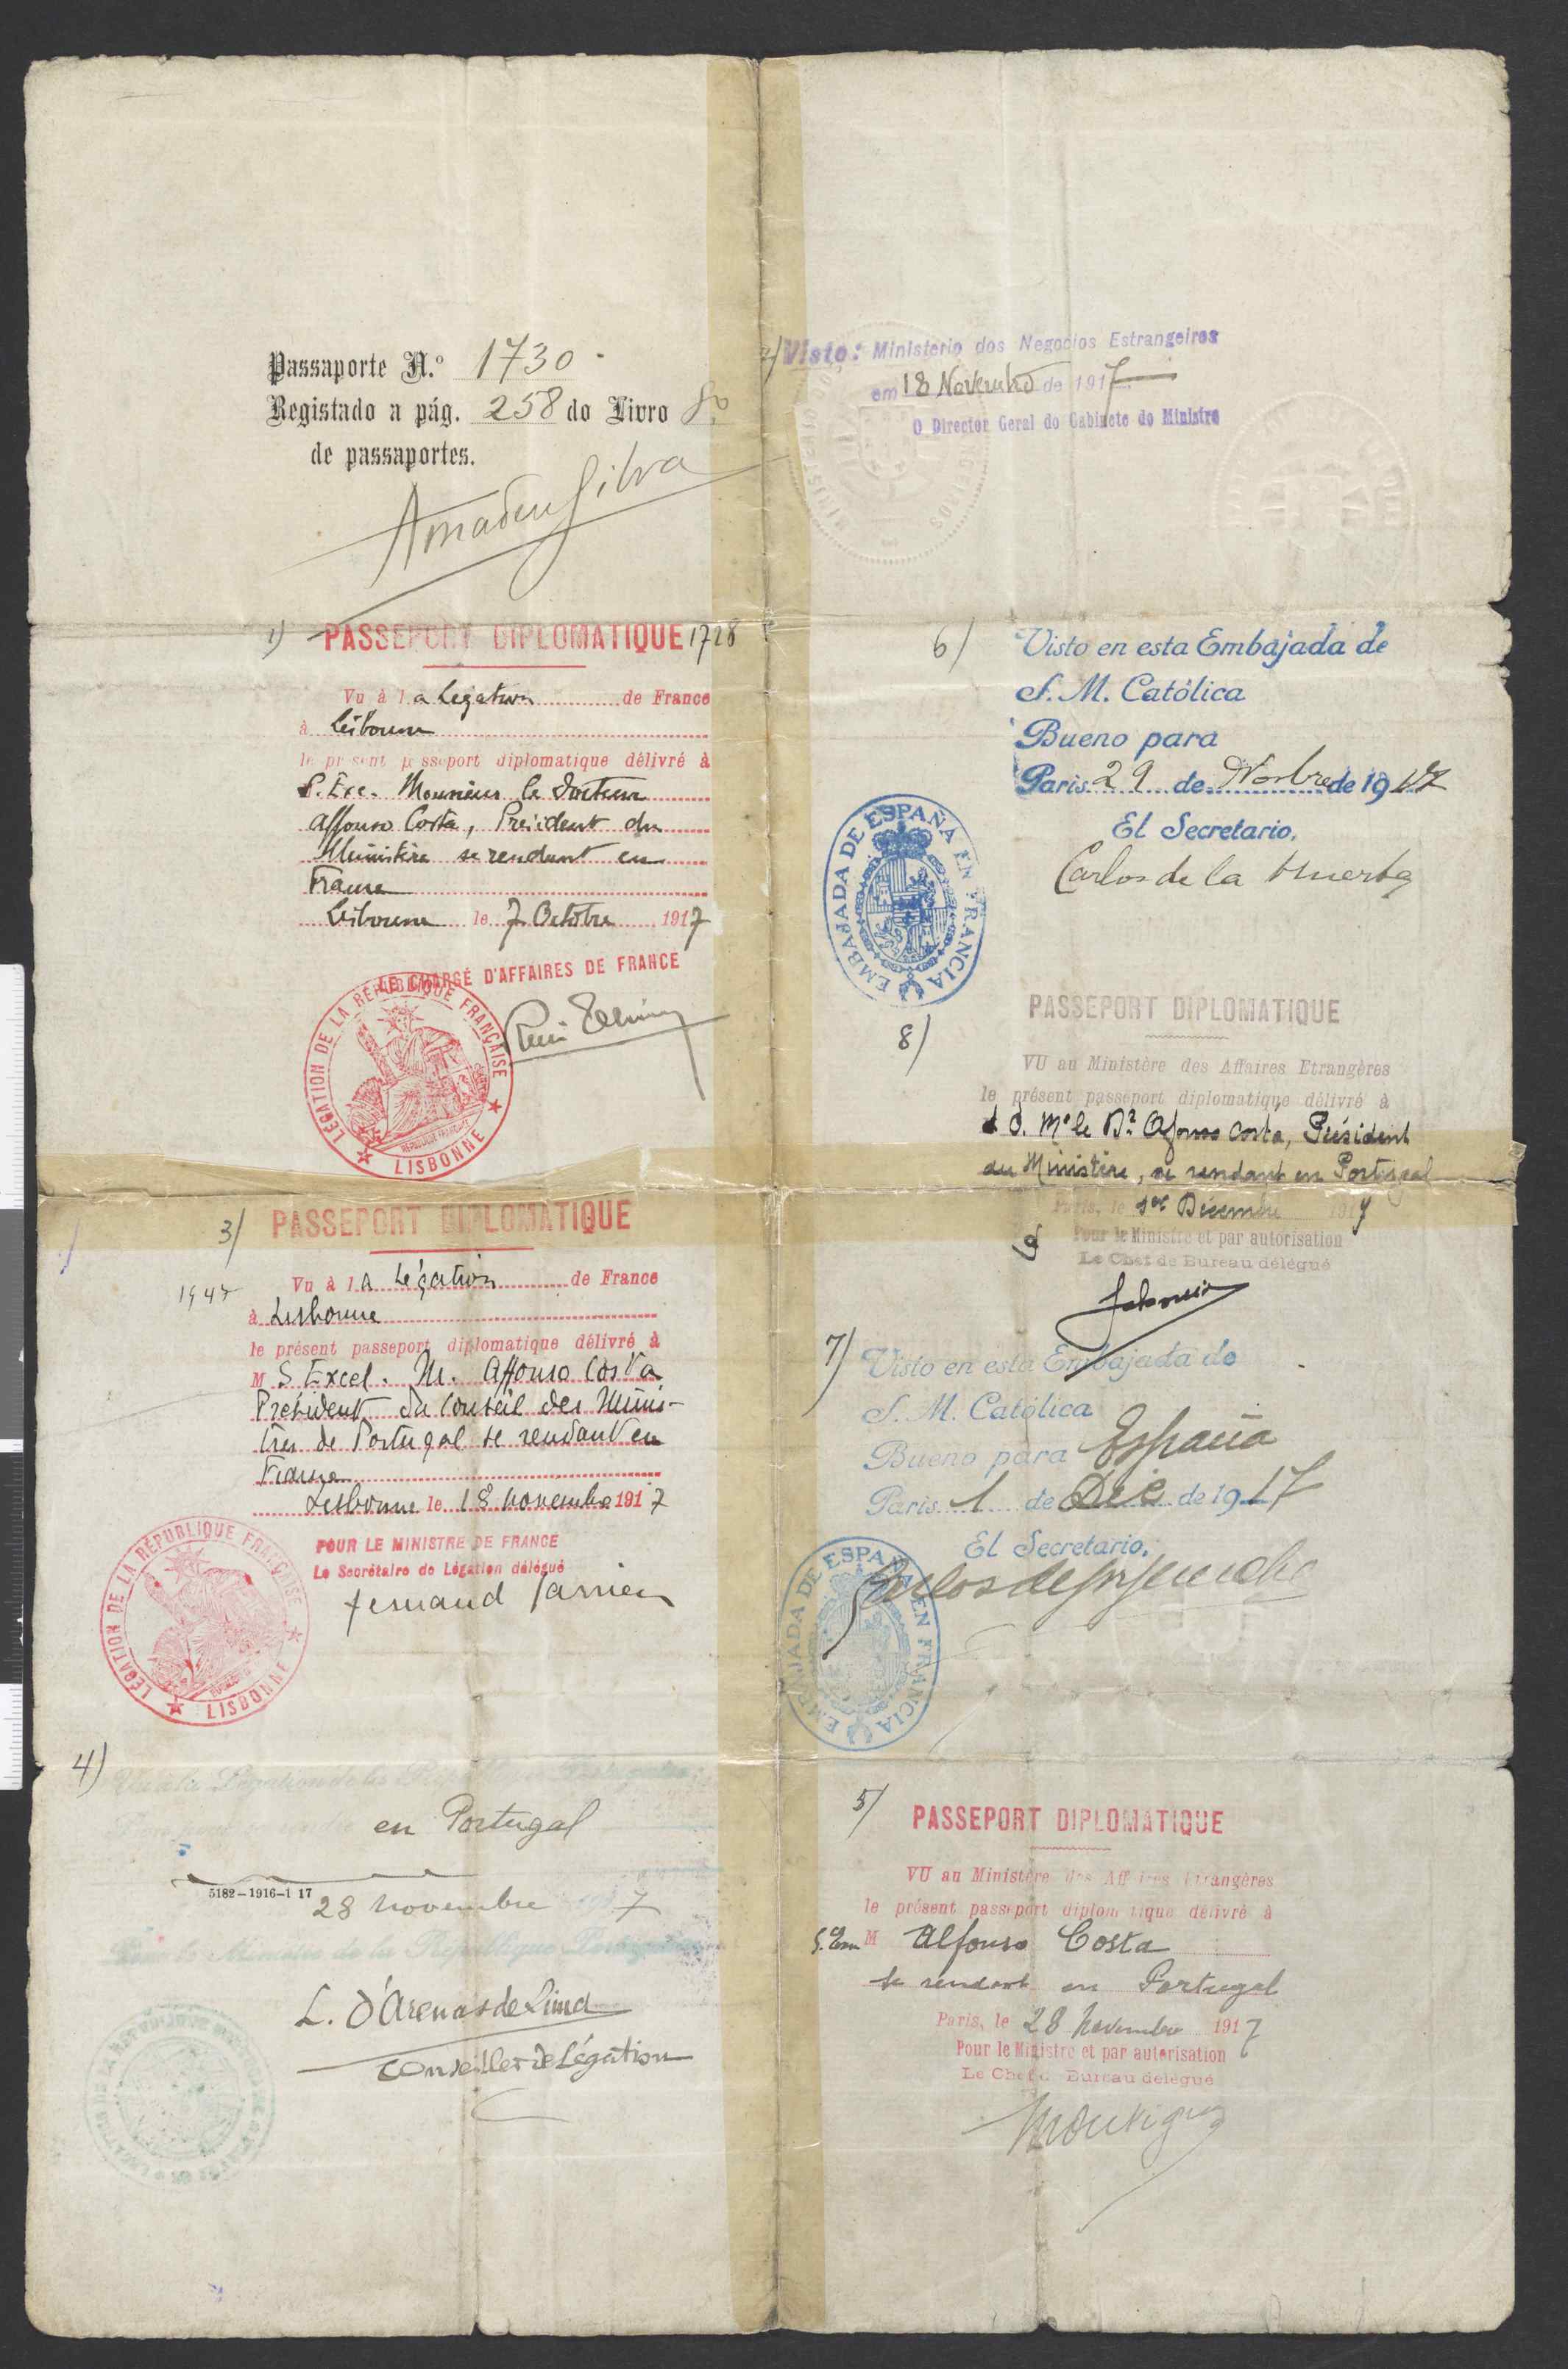 Passaporte N.º 1730
Registado a pág. 258 do Livro 8º
de passaportes.
Amadeu Silva
2/ Visto: Ministerio dos Negocios Estrangeiros
em 18 Novembro de 1917
O Director Geral do Gabinete do Ministro
1) PASSEPORT DIPLOMATIQUE 1728
Vu à la Legation de France
à Lisbonne
le présent passeport diplomatique délivré à
S. Exc. Monsieur le Docteur
Affonso Costa, President du
Ministère se rendant en
France
Lisbonne le 7 Octobre 1917
LE CHARGÉ D'AFFAIRES DE FRANCE
LÉGATION DE LA RÉPUBLIQUE FRANÇAISE
LISBONNE
3/ PASSEPORT DIPLOMATIQUE
1947
Vu à la Légation de France
à Lisbonne
le présent passeport diplomatique délivré à
M S Excel. M. Affonso Costa
Président du Conseil des Minis-
tres de Portugal se rendant en
France
Lisbonne le 18 novembre 1917
POUR LE MINISTRE DE FRANCE
Le Secrétaire de Légation délégué
fernand
LÉGATION DE LA RÉPUBLIQUE FRANÇAISE
LISBONNE
4)
en Portugal
5182-1916-1 17
28 novembre 1917
Ministre de la République
L. D'Arenas de Lima
Conseiller de Légation
6/ Visto en esta Embajada de
S. M. Católica
Bueno para
Paris 29 de Novbre de 1917
El Secretario,
Carlos de la Huerta
EMBAJADA DE ESPAÑA EN FRANCIA
8/ PASSEPORT DIPLOMATIQUE
VU au Ministère des Affaires Etrangères
le présent passeport diplomatique délivré à
Mr le Dr Afonso Costa, Président
du Ministère, se rendant en Portugal
Paris, le 1er Décembre 1917
Pour le Ministre et par autorisation
Le Chef de Bureau délégué
7/ Visto en esta Embajada de
S. M. Católica
Bueno para España
Paris 1 de Dic de 1917
El Secretario,
EMBAJADA DE ESPAÑA EN FRANCIA
5/ PASSEPORT DIPLOMATIQUE
VU au Ministère des Affaires Etrangères
le présent passeport diplomatique délivré à
M Alfonso Costa
se rendant en Portugal
Paris, le 28 Novembre 1917
Pour le Ministre et par autorisation
Le Chef de Bureau délégué